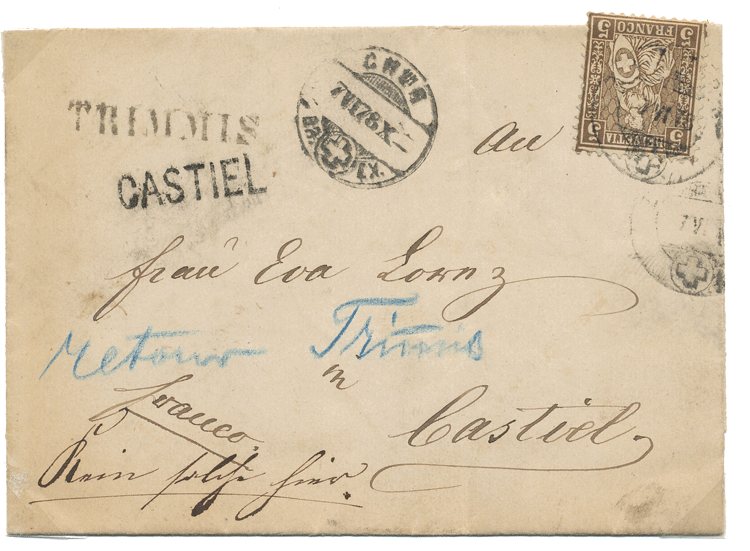 5 FRANCO 5
5 HELVETIA 5
CHUR
7 VI 78 X
BR. EX.
TRIMMIS
CASTIEL
An
Frau Eva Lorenz
retour Trimmis
in
Franco.
Castiel.
Kein solche hier.
7 VI